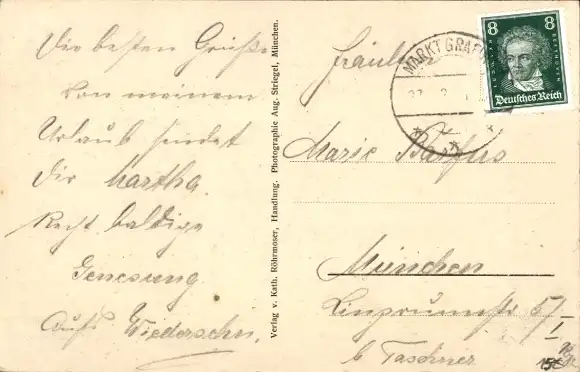 Die besten Grüße
von meinem
Urlaub sendet
Dir Martha.
Recht baldige
Genesung
Auf Wiedersehn.
Verlag v. Kath. Röhrmoser, Handlung. Photographie Aug. Striegel, München.
Fräulein
MARKT GRAF
8 8
Deutsches Reich
Marie
München
5/I
b. Taschner